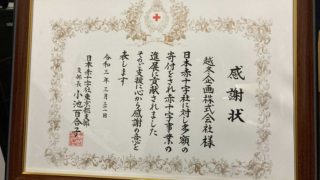 感謝状
越禾企画株式会社 様
日本赤十字社に対し多額の
寄付をされ赤十字事業の
進展に貢献されました
そのご支援に心から感謝の意を
表します
令和三年三月三一日
日本赤十字社東京都支部
支部長 小池百合子